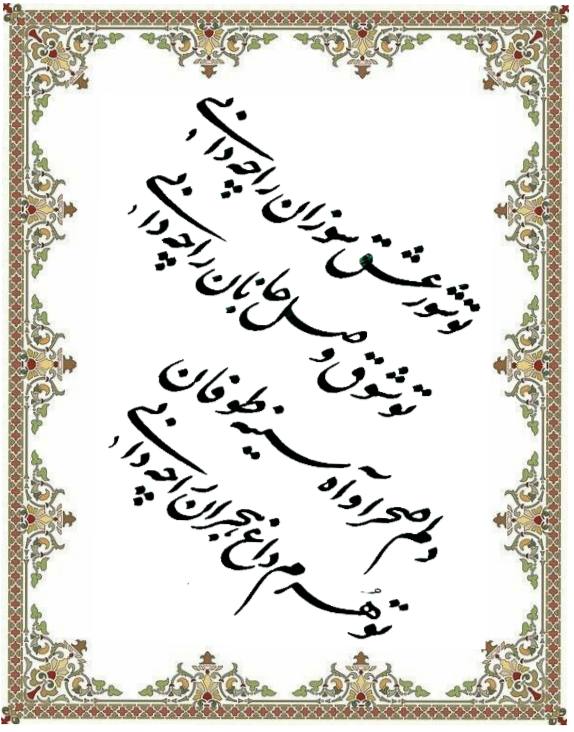 تو شور عشق سوزان را چه دانی
تو شوق وصل جانان را چه دانی
دلم صحرا و آه سینه طوفان
تو هُرم داغ هجران را چه دانی